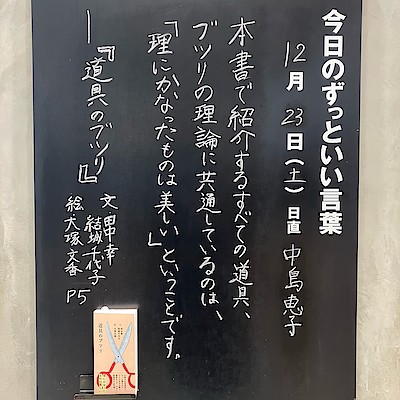 今日のずっといい言葉
12月23日(土) 日直 中島恵子
本書で紹介するすべての道具、
ブツリの理論に共通しているのは、
「理にかなったものは美しい」ということです。
―『道具のブツリ』
文 田中幸
結城千代子
絵 大塚文香
P5
道具のブツリ